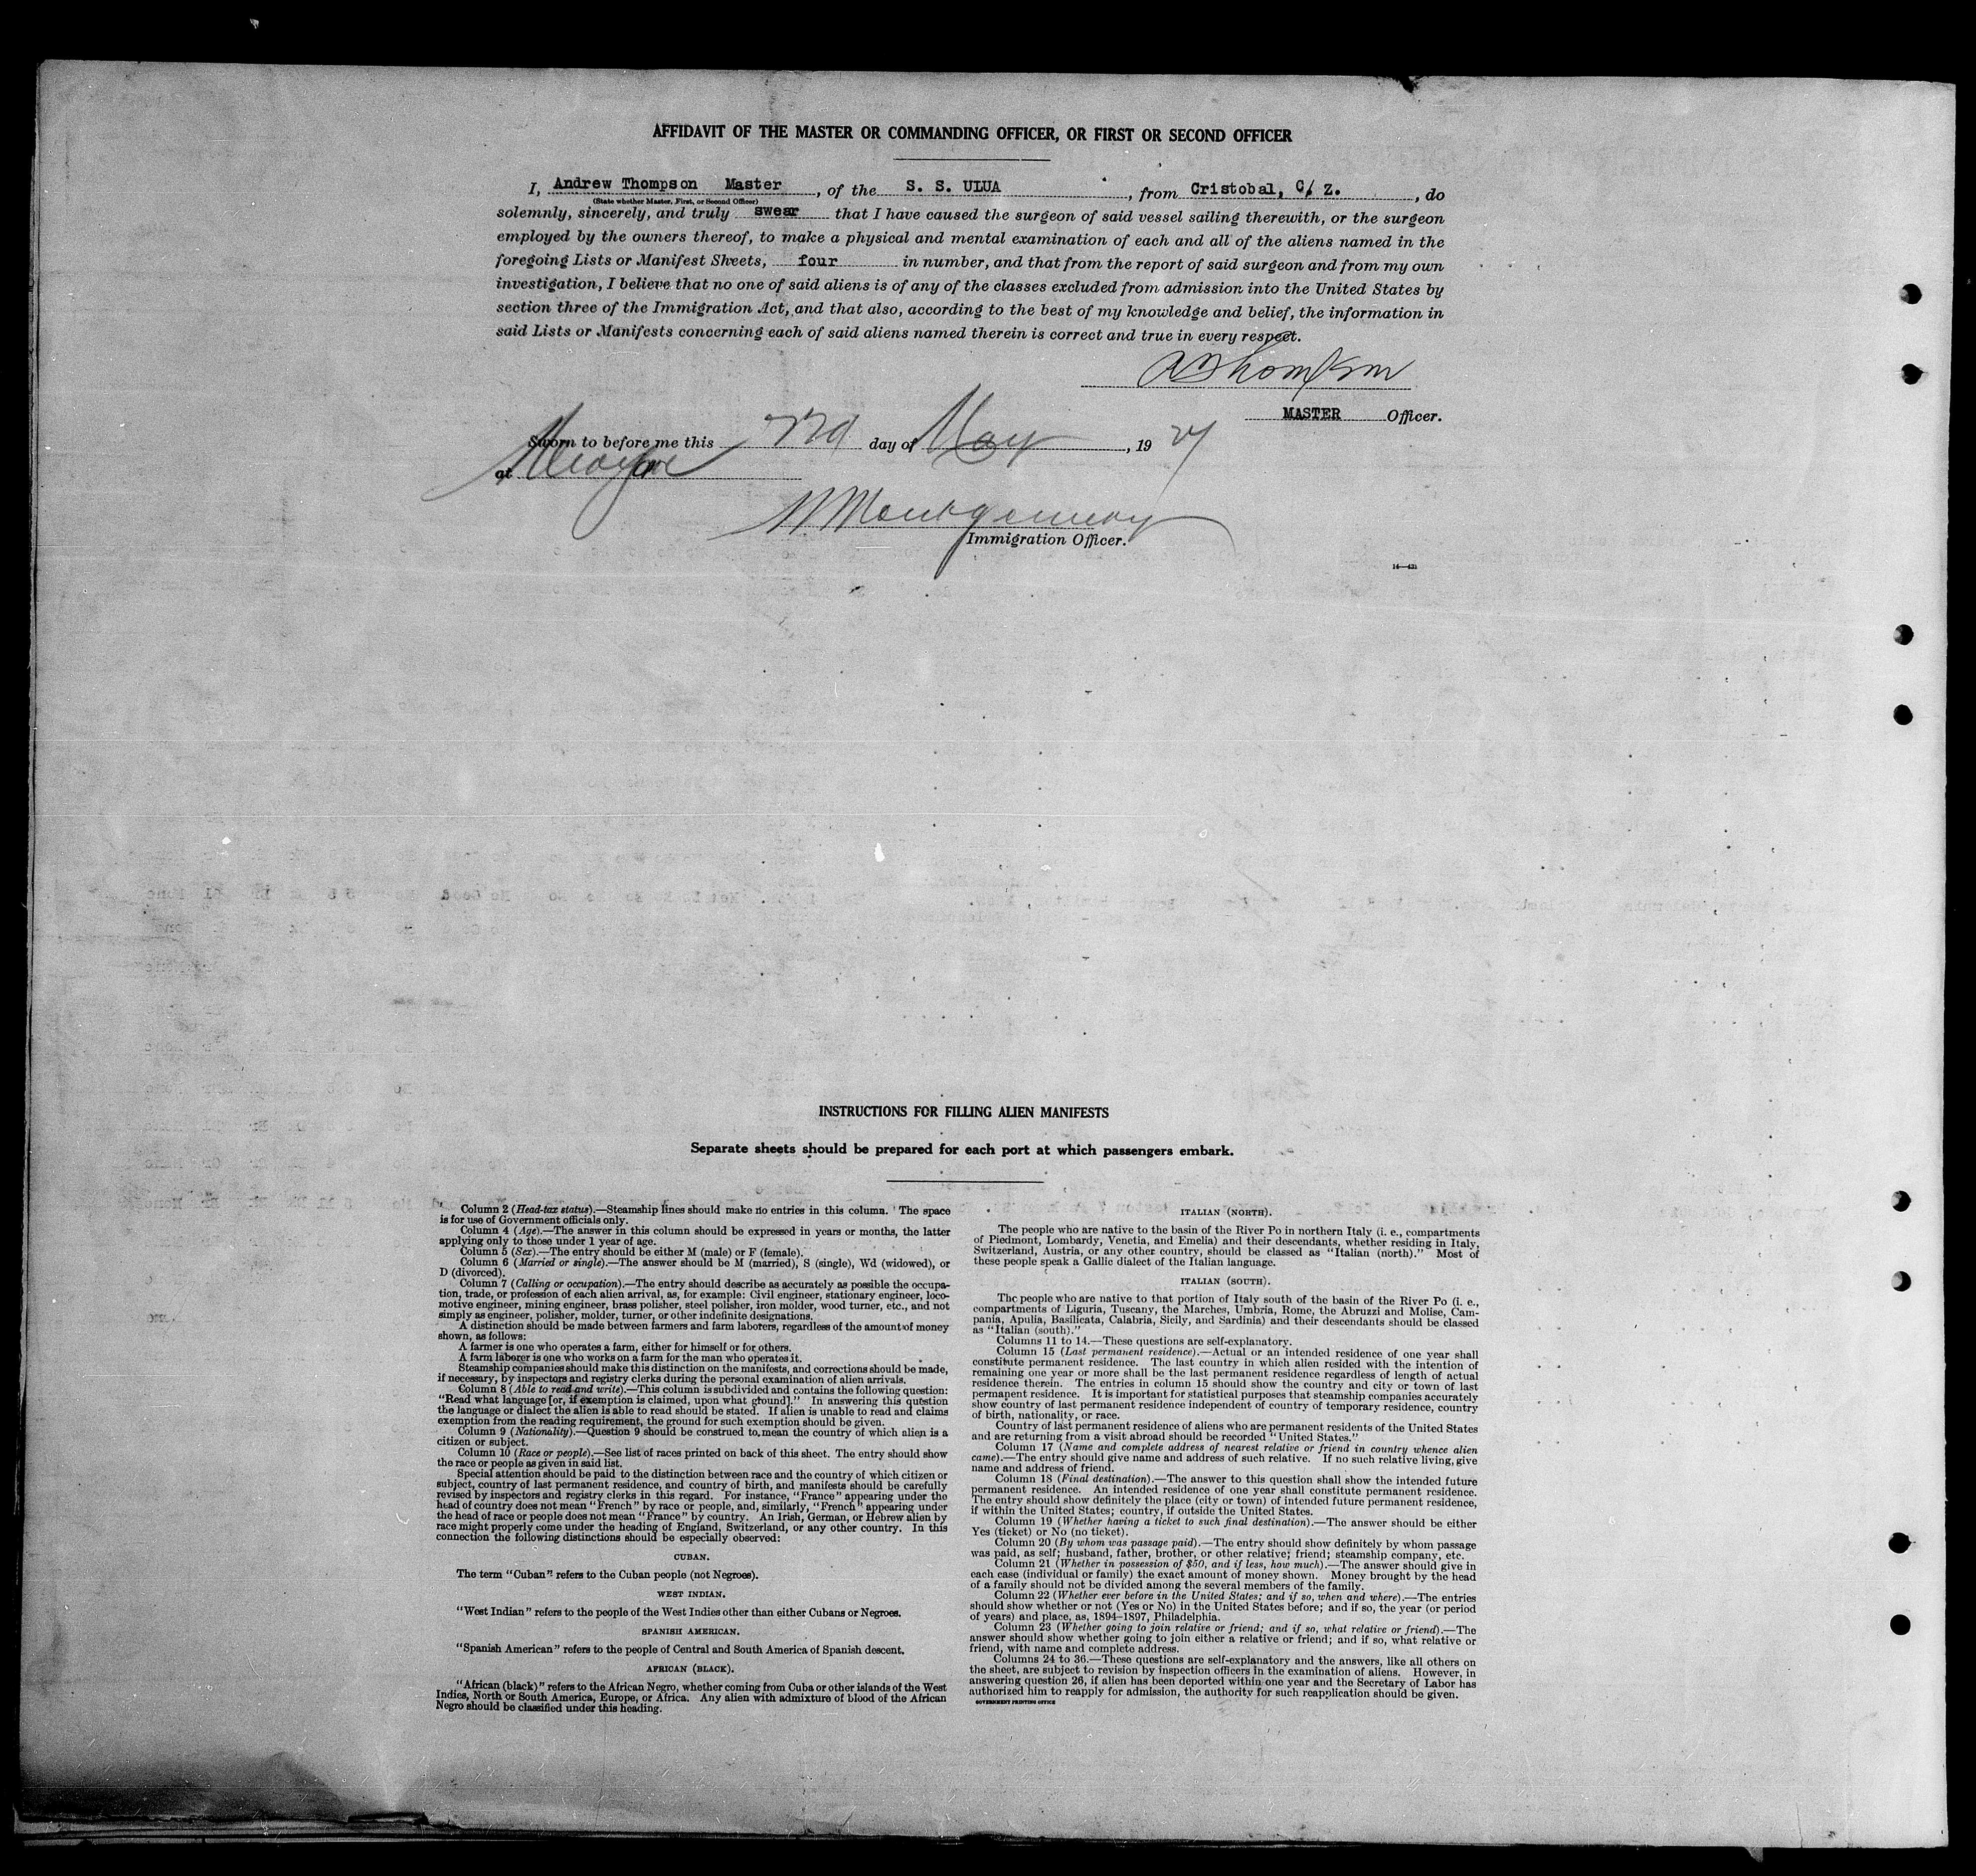 AFFIDAVIT OF THE MASTER OR COMMANDING OFFICER, OR FIRST OR SECOND OFFICER
I, Andrew Thompson Master, of the S. S. ULUA, from Cristobal, C. Z., do
(State whether Master, First, or Second Officer)
solemnly, sincerely, and truly swear that I have caused the surgeon of said vessel sailing therewith, or the surgeon
employed by the owners thereof, to make a physical and mental examination of each and all of the aliens named in the
foregoing Lists or Manifest Sheets, four in number, and that from the report of said surgeon and from my own
investigation, I believe that no one of said aliens is of any of the classes excluded from admission into the United States by
section three of the Immigration Act, and that also, according to the best of my knowledge and belief, the information in
said Lists or Manifests concerning each of said aliens named therein is correct and true in every respect.
A Thompson
MASTER Officer.
Sworn to before me this day of May, 19 27
at
Montgomery
Immigration Officer.
14—421
INSTRUCTIONS FOR FILLING ALIEN MANIFESTS
Separate sheets should be prepared for each port at which passengers embark.
Column 2 (Head-tax status).—Steamship lines should make no entries in this column. The space
is for use of Government officials only.
Column 4 (Age).—The answer in this column should be expressed in years or months, the latter
applying only to those under 1 year of age.
Column 5 (Sex).—The entry should be either M (male) or F (female).
Column 6 (Married or single).—The answer should be M (married), S (single), Wd (widowed), or
D (divorced).
Column 7 (Calling or occupation).—The entry should describe as accurately as possible the occupa-
tion, trade, or profession of each alien arrival, as, for example: Civil engineer, stationary engineer, loco-
motive engineer, mining engineer, brass polisher, steel polisher, iron molder, wood turner, etc., and not
simply as engineer, polisher, molder, turner, or other indefinite designations.
A distinction should be made between farmers and farm laborers, regardless of the amount of money
shown, as follows:
A farmer is one who operates a farm, either for himself or for others.
A farm laborer is one who works on a farm for the man who operates it.
Steamship companies should make this distinction on the manifests, and corrections should be made,
if necessary, by inspectors and registry clerks during the personal examination of alien arrivals.
Column 8 (Able to read and write).—This column is subdivided and contains the following question:
"Read what language [or, if exemption is claimed, upon what ground]." In answering this question
the language or dialect the alien is able to read should be stated. If alien is unable to read and claims
exemption from the reading requirement, the ground for such exemption should be given.
Column 9 (Nationality).—Question 9 should be construed to mean the country of which alien is a
citizen or subject.
Column 10 (Race or people).—See list of races printed on back of this sheet. The entry should show
the race or people as given in said list.
Special attention should be paid to the distinction between race and the country of which citizen or
subject, country of last permanent residence, and country of birth, and manifests should be carefully
revised by inspectors and registry clerks in this regard. For instance, "France" appearing under the
head of country does not mean "French" by race or people, and, similarly, "French" appearing under
the head of race or people does not mean "France" by country. An Irish, German, or Hebrew alien by
race might properly come under the heading of England, Switzerland, or any other country. In this
connection the following distinctions should be especially observed:
CUBAN.
The term "Cuban" refers to the Cuban people (not Negroes).
WEST INDIAN.
"West Indian" refers to the people of the West Indies other than either Cubans or Negroes.
SPANISH AMERICAN.
"Spanish American" refers to the people of Central and South America of Spanish descent.
AFRICAN (BLACK).
"African (black)" refers to the African Negro, whether coming from Cuba or other islands of the West
Indies, North or South America, Europe, or Africa. Any alien with admixture of blood of the African
Negro should be classified under this heading.
ITALIAN (NORTH).
The people who are native to the basin of the River Po in northern Italy (i. e., compartments
of Piedmont, Lombardy, Venetia, and Emelia) and their descendants, whether residing in Italy,
Switzerland, Austria, or any other country, should be classed as "Italian (north)." Most of
these people speak a Gallic dialect of the Italian language.
ITALIAN (SOUTH).
The people who are native to that portion of Italy south of the basin of the River Po (i. e.,
compartments of Liguria, Tuscany, the Marches, Umbria, Rome, the Abruzzi and Molise, Cam-
pania, Apulia, Basilicata, Calabria, Sicily, and Sardinia) and their descendants should be classed
as "Italian (south)."
Columns 11 to 14.—These questions are self-explanatory.
Column 15 (Last permanent residence).—Actual or an intended residence of one year shall
constitute permanent residence. The last country in which alien resided with the intention of
remaining one year or more shall be the last permanent residence regardless of length of actual
residence therein. The entries in column 15 should show the country and city or town of last
permanent residence. It is important for statistical purposes that steamship companies accurately
show country of last permanent residence independent of country of temporary residence, country
of birth, nationality, or race.
Country of last permanent residence of aliens who are permanent residents of the United States
and are returning from a visit abroad should be recorded "United States."
Column 17 (Name and complete address of nearest relative or friend in country whence alien
came).—The entry should give name and address of such relative. If no such relative living, give
name and address of friend.
Column 18 (Final destination).—The answer to this question shall show the intended future
permanent residence. An intended residence of one year shall constitute permanent residence.
The entry should show definitely the place (city or town) of intended future permanent residence,
if within the United States; country, if outside the United States.
Column 19 (Whether having a ticket to such final destination).—The answer should be either
Yes (ticket) or No (no ticket).
Column 20 (By whom was passage paid).—The entry should show definitely by whom passage
was paid, as self; husband, father, brother, or other relative; friend; steamship company, etc.
Column 21 (Whether in possession of $50, and if less, how much).—The answer should give in
each case (individual or family) the exact amount of money shown. Money brought by the head
of a family should not be divided among the several members of the family.
Column 22 (Whether ever before in the United States; and if so, when and where).—The entries
should show whether or not (Yes or No) in the United States before; and if so, the year (or period
of years) and place, as, 1894–1897, Philadelphia.
Column 23 (Whether going to join relative or friend; and if so, what relative or friend).—The
answer should show whether going to join either a relative or friend; and if so, what relative or
friend, with name and complete address.
Columns 24 to 36.—These questions are self-explanatory and the answers, like all others on
the sheet, are subject to revision by inspection officers in the examination of aliens. However, in
answering question 26, if alien has been deported within one year and the Secretary of Labor has
authorized him to reapply for admission, the authority for such reapplication should be given.
GOVERNMENT PRINTING OFFICE